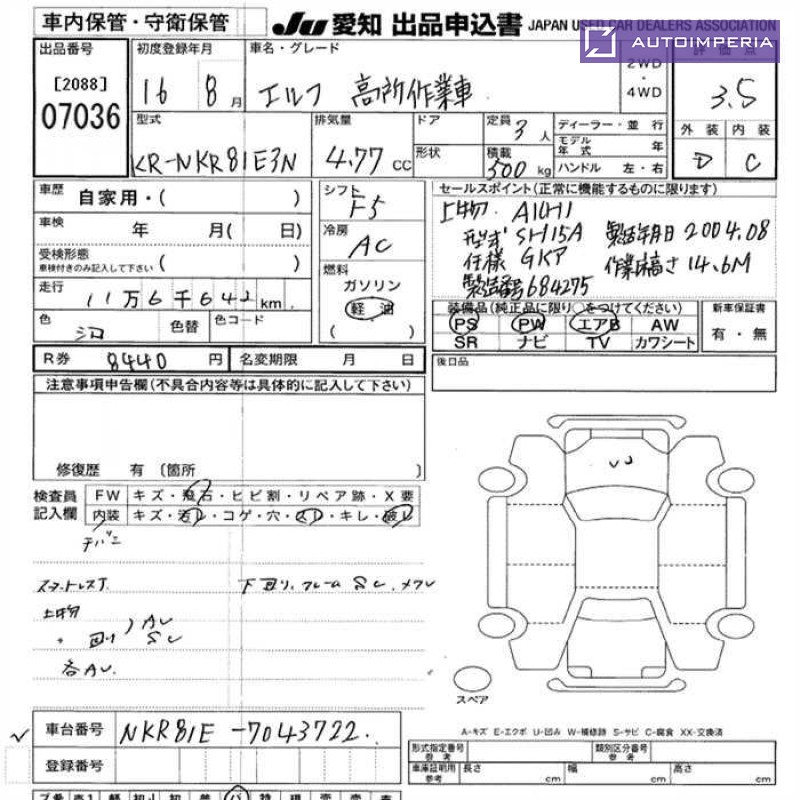 車内保管・守衛保管
JU 愛知 出品申込書 JAPAN USED CAR DEALERS ASSOCIATION
AUTOIMPERIA
出品番号 初度登録年月 車名・グレード 2WD・4WD 評価点
[2088]
07036
16 8月 エルフ 高所作業車 3.5
型式 排気量 ドア 定員 3人 ディーラー・並行 外装 内装
モデル年式 年
KR-NKR81E3N 4.77 CC 形状 積載 500 kg ハンドル 左・右 D C
車歴 自家用・( ) シフト F5 セールスポイント(正常に機能するものに限ります)
車検 年 月( 日) 冷房 AC
上物 AICHI
型式 SH15A 製造年月日 2004.08
仕様 GKP 作業床高さ 14.6M
製造番号 684275
受検形態 ( )
車検付きのみ記入して下さい
燃料 ガソリン 軽油 ( )
走行 11万6千642km
色 色替 色コード
装備品(純正品に限り○をつけてください) 新車保証書
PS PW エアB AW 有・無
SR ナビ TV カワシート
R券 8440円 名変期限 月 日 後日品
注意事項申告欄(不具合内容等は具体的に記入して下さい)
修復歴 有 〔箇所 〕
検査員記入欄 FW キズ・飛石・ヒビ割・リペア跡・X要
内装 キズ・汚レ・コゲ・穴・スレ・キレ・破レ
下回り.フレーム SC.
上物
〃 回り AU SC
各AU.
スペア
A-キズ E-エクボ U-凹み W-補修跡 S-サビ C-腐食 XX-交換済
車台番号 NKR81E-7043722.
登録番号
形式指定番号 参考 類別区分番号 参考
車庫証明用 参考 長さ cm 幅 cm 高さ cm